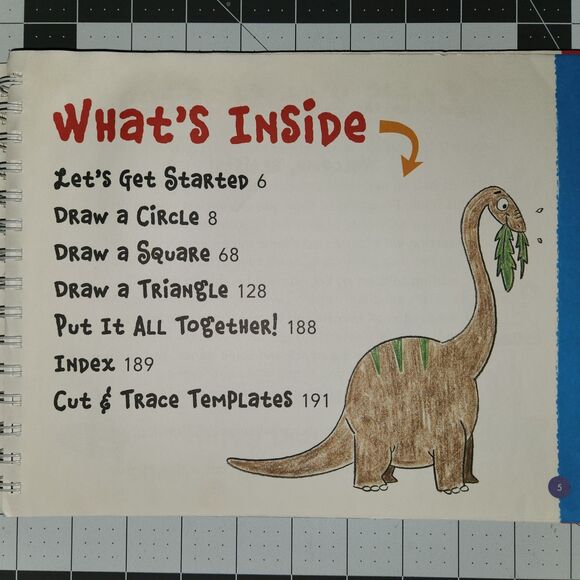 What's Inside
Let's Get Started 6
Draw a Circle 8
Draw a Square 68
Draw a Triangle 128
Put It All Together! 188
Index 189
Cut & Trace Templates 191
5